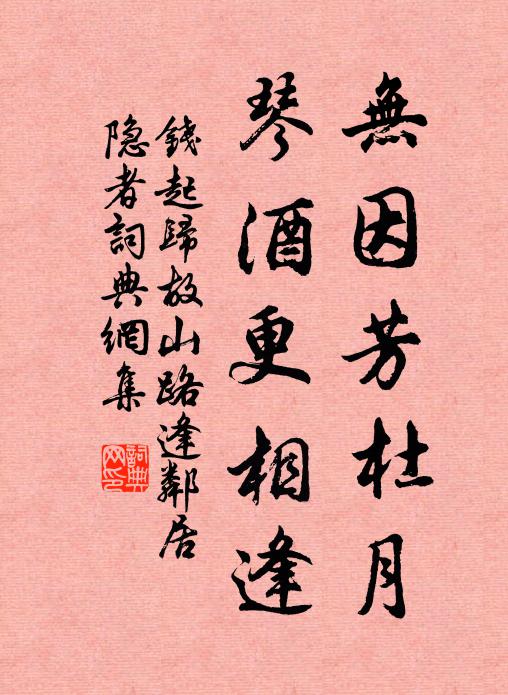 無因芳杜月
琴酒更相逢
錢起歸故山路逢鄰居
隐者詞典網集
詞典
网印